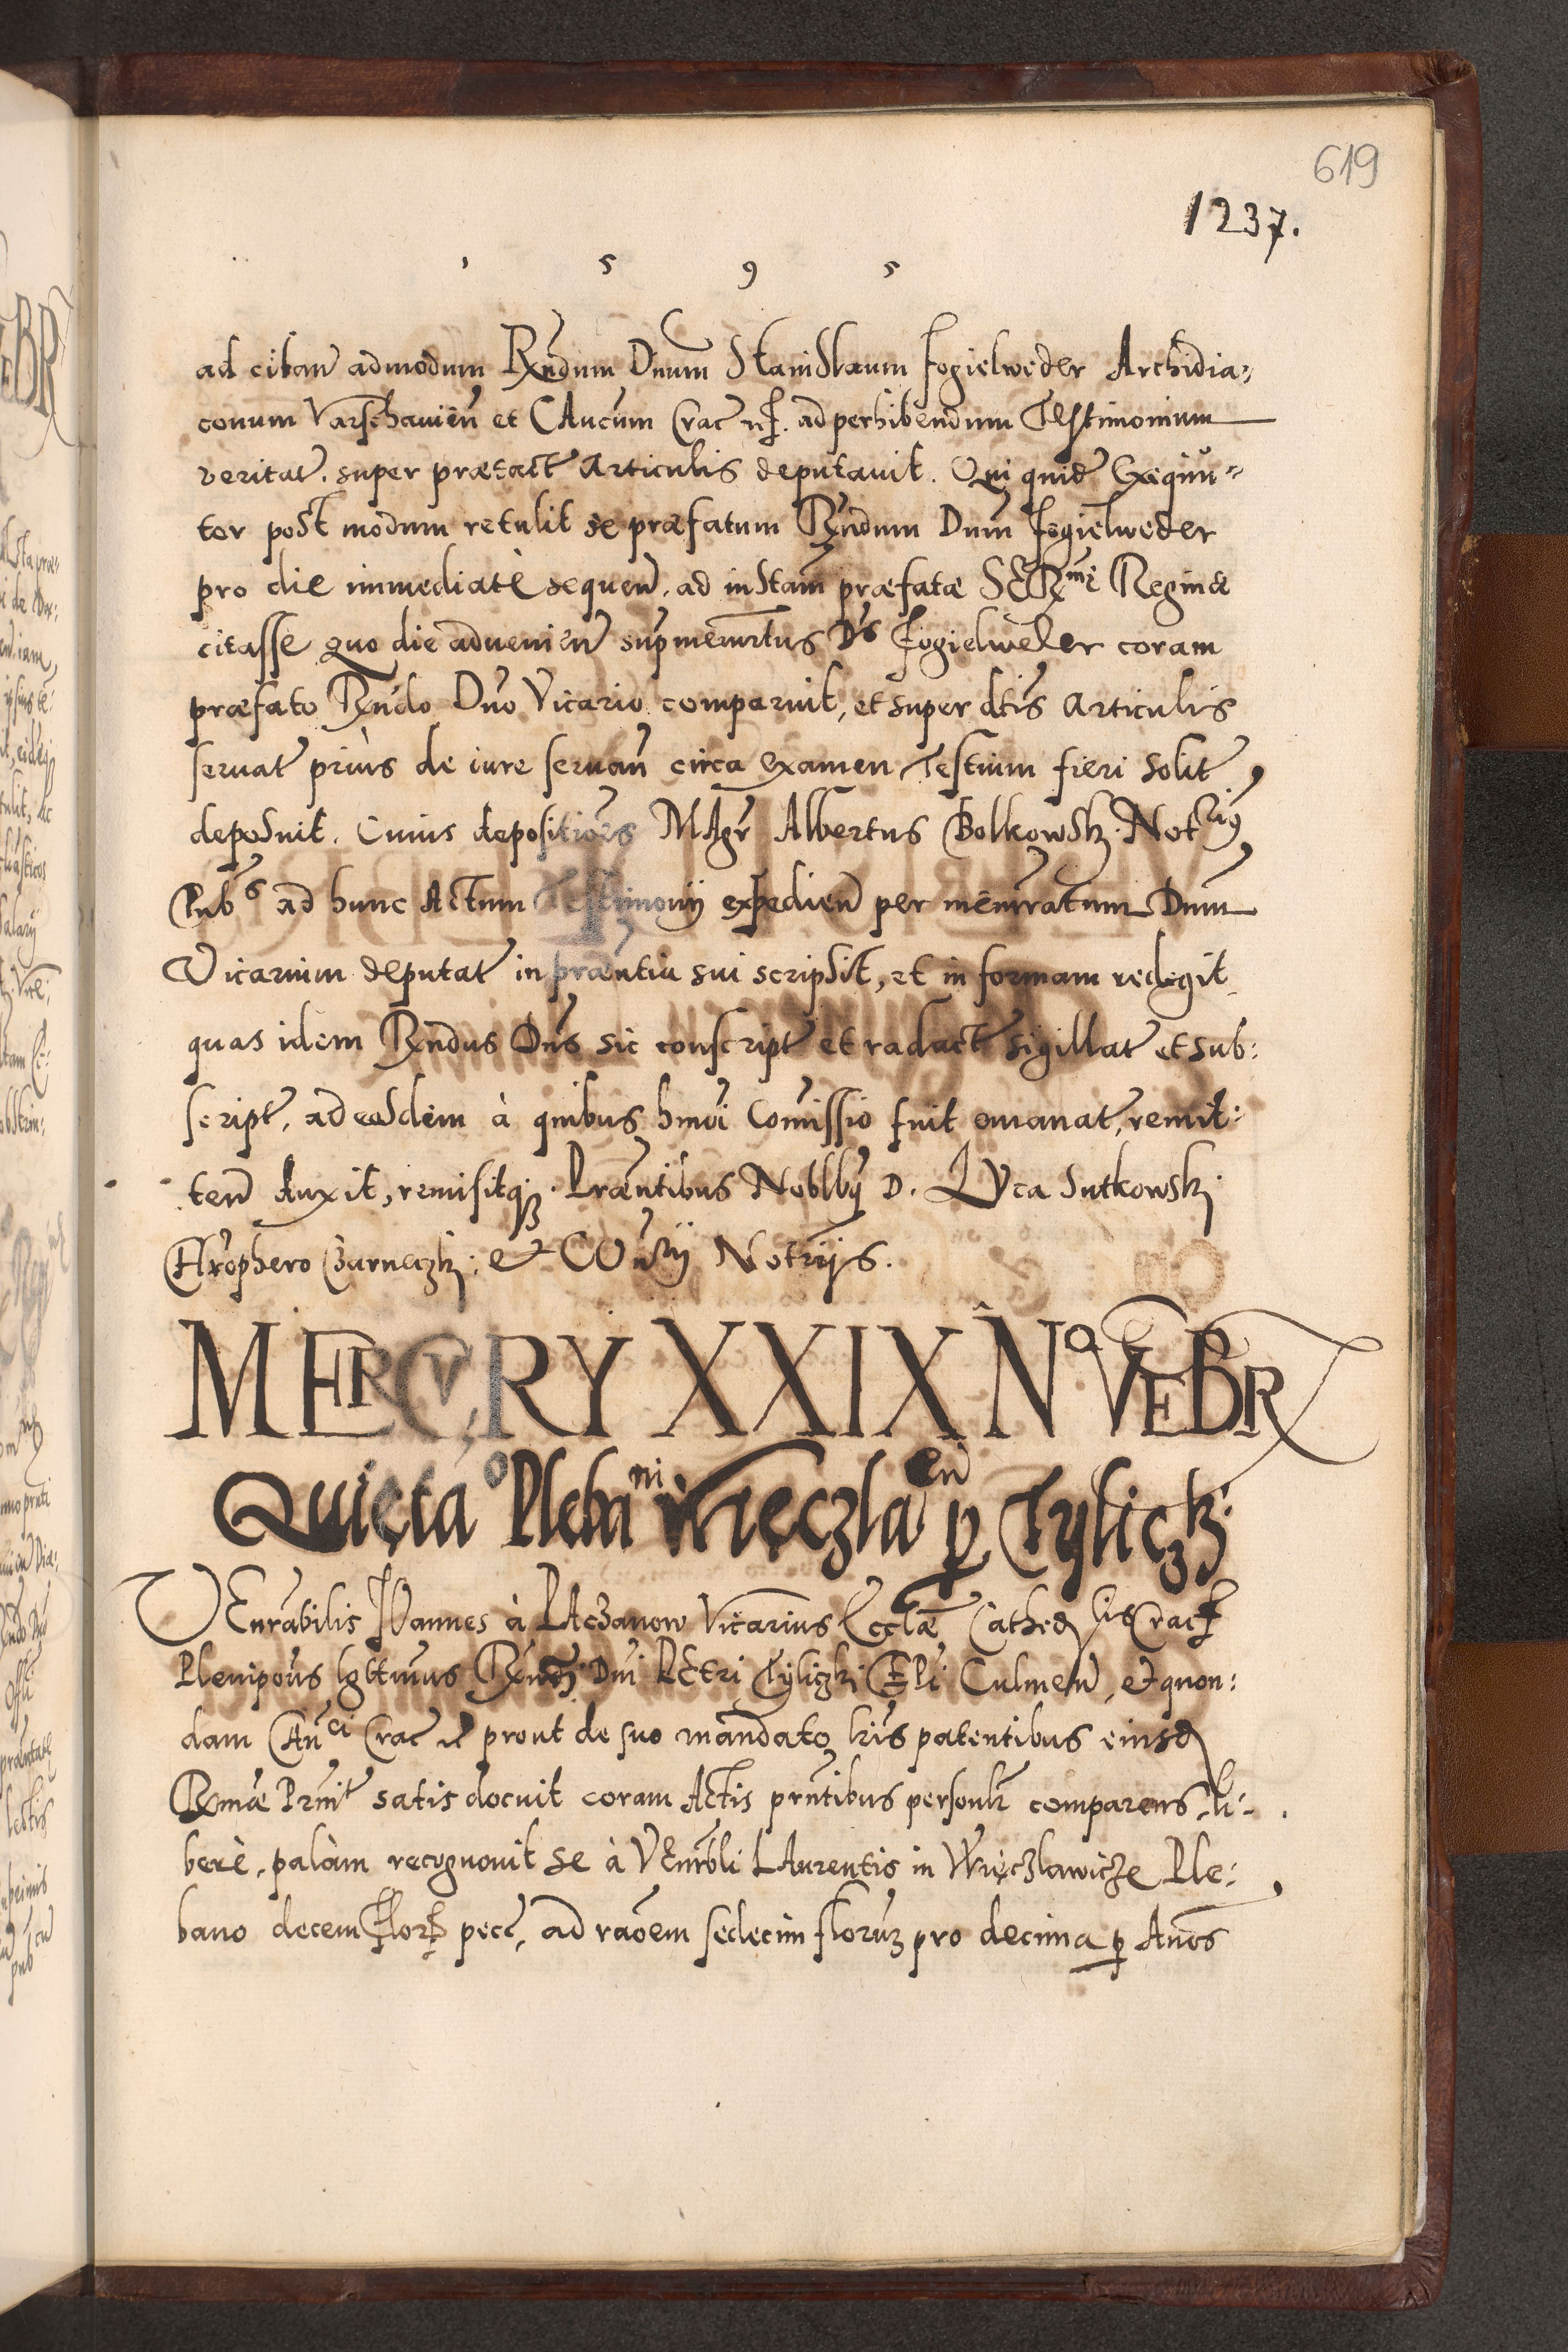 619
1237.
1 5 9 5
ad citan admodum Rndum Dnum Stanislaum Fogielweder Archidia=
conum Varschauien et CAncum Crac ad perhibendum Testimonium
veritat. super praetact Articulis deputauit. Qui quide Exequu=
tor post modum retulit se praefatum Rndum Dnum Fogielweder
pro die immediatè sequen. ad instam praefatae SERme Reginae
citasse Quo die aduenien supmemrtus Ds Fogielweder coram
praefato Rndo Dno Vicario comparuit, et super dtis Articulis
seruat priùs de iure seruan circa examen Testium fieri solit
deposuit. Cuius depositiões MAgr Albertus Bolkowsk. Notrius
Pubs ad hunc Actum Testimonij expedien per memratum Dnum
Vicarium deputat in praentia sui scripsit, et in formam redegit
quas idem Rndus Dns sic conscript et radact sigillat et sub:
script, ad eosdem à quibus hmoi Comissio fuit emanat, remit:
ten duxit, remisitq. Praentibus Noblby D. LVca Sutkowsk.
Chrophero Czarneczk: et COnsrij Notrijs.
MERCVRY XXIX NoVEBR
Quieta o Plebani Wręczlaen p Tyliczk:
VEnrabilis IOannes à PAczanow Vicarius Ecclae Cathedlis Crac
Plenipons lgttimus Rndi Dni PEtri Tyliczki EPi Culmen, et quon:
dam CAnci Crac prout de suo mandato lris patentibus eiusd
Rmae Prnit satis docuit coram Actis prntibus personlr comparens, li:
berè, palàm recognouit se à VEnrbli LAurentio in Więczlawicze Ple:
bano decem Flor pecc, ad raõem sedecim floruz pro decima p Annos